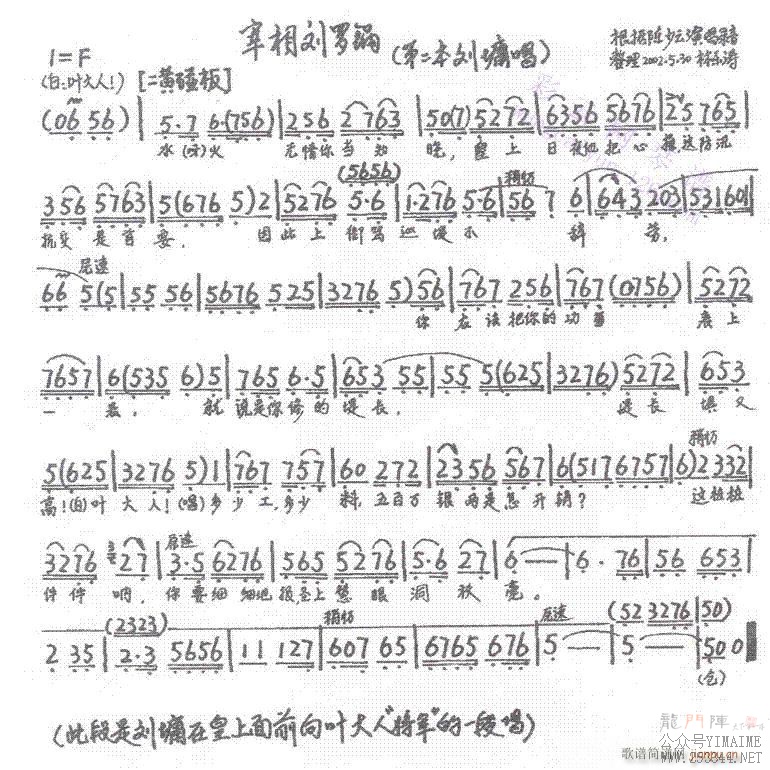 宰相刘罗锅(第二本刘墉唱)
1=F
(白:叶大人!) [二黄碰板]
根据陈少云演唱录音
整理2002.5.30
(06 56)| 5·7 6·(756)|256 2763|50(7)5272|6356 5676|25 765|
水(呀)火 无情你当知晓,皇上日夜把心操这防汛
356 5763|5(676 5)2|5276 5·6|1·276 5·6|56 7 6|643 203|53 160|
(5656) 稍切
抗灾是首要, 因此上街骂巡堤不辞劳,
尾速
66 5(5|55 56|5676 525|3276 5)56|767 256|767 (0756)|5272
你应该把你的功 表上
7657|6(535 6)5|765 6·5|653 55|55 5(625|3276)5272|653
一表, 就说是你修的堤长, 堤长填又
稍切
5(625|3276 5)1|767 757|60 272|2356 567|6(517 6757|6)2 332|
高!(白)叶大人!(唱)多少工,多少料,五百万银两是怎开销? 这桩桩
尾速
3276 27|3·5 6276|565 5276|5·6 27|6 —|6· 76|56 653|
件件呐,你要细细地报,圣上慧眼洞秋毫。
(2323) 稍切 尾速 (52 3276|50)
2 35|2·3 5656|11 127|607 65|6765 676|5 —|5 —|500‖
(仓)
(此段是刘墉在皇上面前向叶大人"将军"的一段唱)
龍門陣
公众号YIMAIME
歌谱简谱网
www.253844.NET